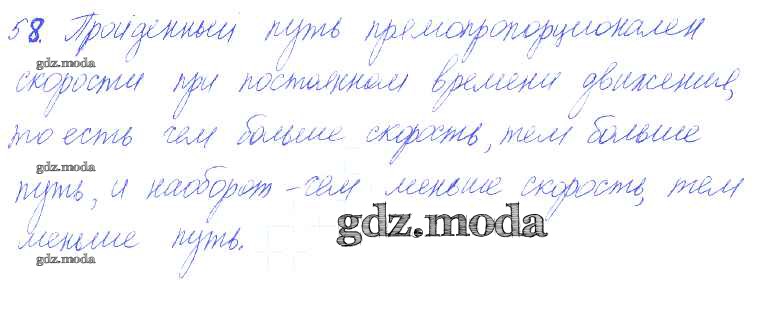 58. Пройденный путь прямопропорционален
gdz.moda
скорости при постоянном времени движения,
то есть чем больше скорость, тем больше
gdz.moda
путь, и наоборот - чем меньше скорость, тем
gdz.moda
меньше путь.
gdz.moda